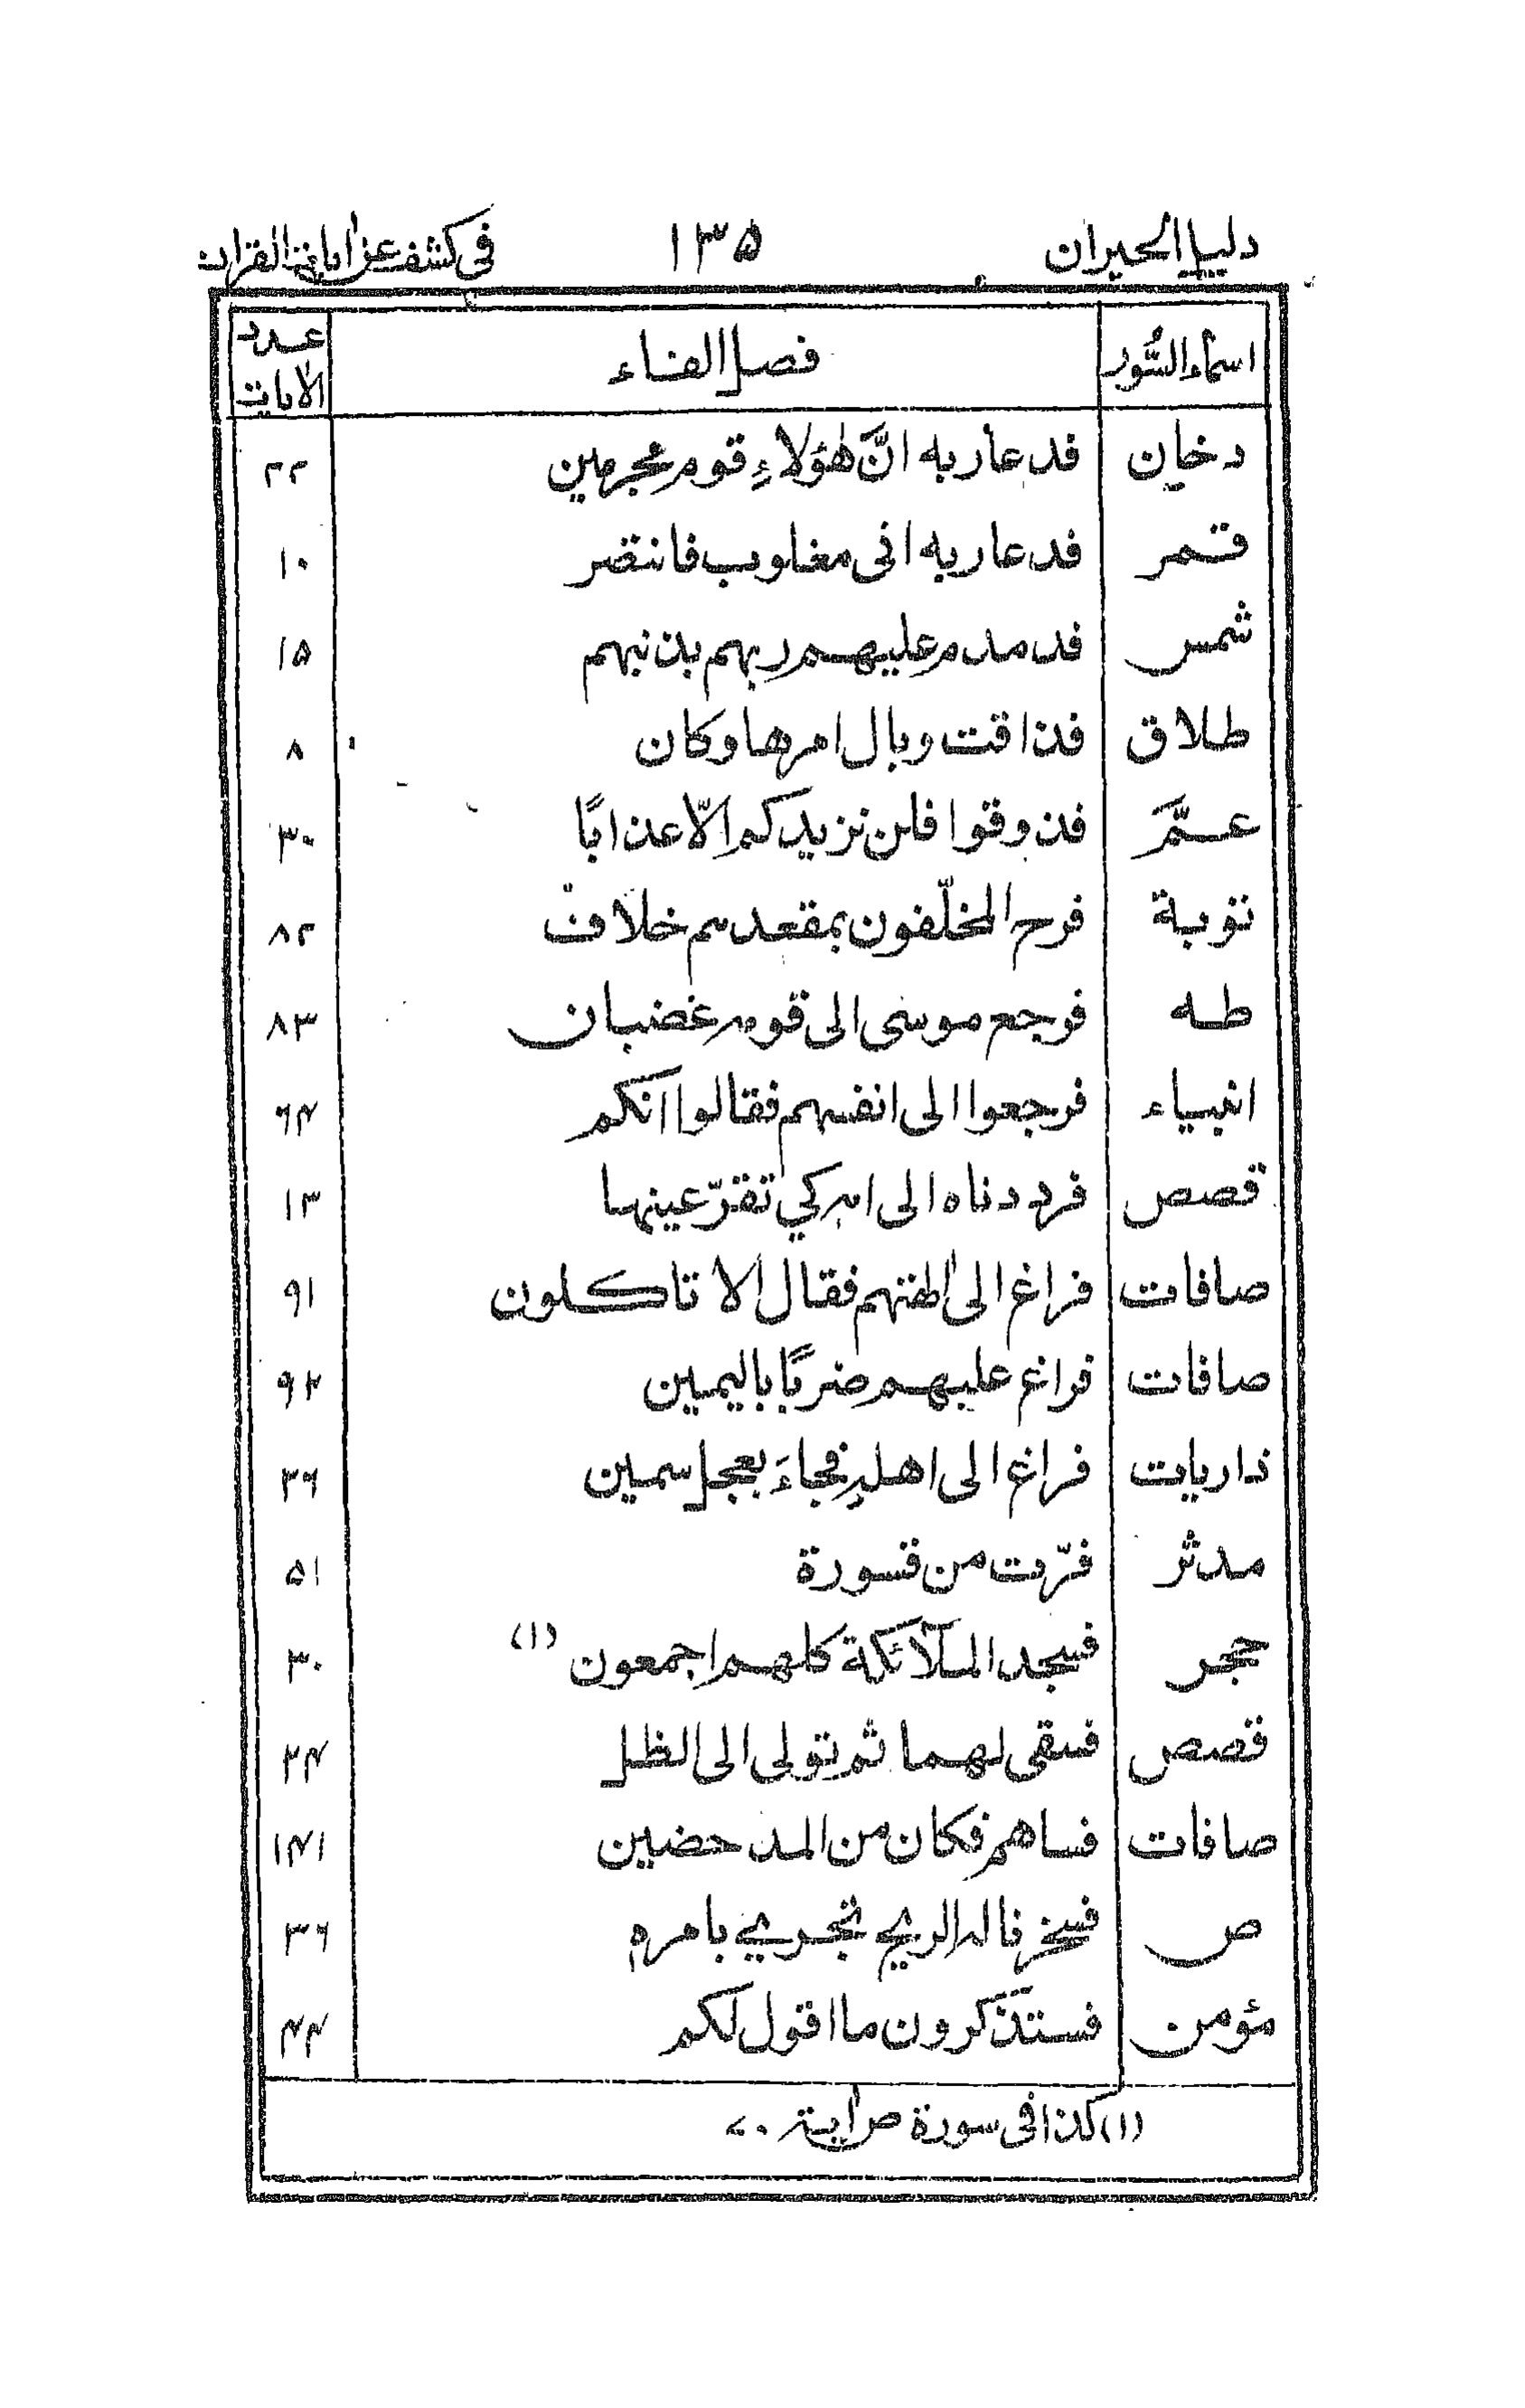 دليل الحيران ١٣٥ في كشف عن ايات القران
اسماء السُّور فصل الفاء عدد الايات
دخان فدعا ربه انَّ هٰؤلاءِ قوم مجرمين ٢٢
قمر فدعا ربه انى مغلوب فانتصر ١٠
شمس فدمدم عليهم ربهم بذنبهم ١٥
طلاق فذاقت وبال امرها وكان ٨
عمَّ فذوقوا فلن نزيدكم الّا عذابًا ٣٠
توبة فرح المخلّفون بمقعدهم خلاف ٨٢
طه فرجع موسى الى قومه غضبان ٨٣
انبياء فرجعوا الى انفسهم فقالوا انكم ٦٤
قصص فرددناه الى امه كي تقرّ عينها ١٣
صافات فراغ الى اٰلهتهم فقال الا تاكلون ٩١
صافات فراغ عليهم ضربًا باليمين ٩٢
ذاريات فراغ الى اهلهٖ فجاءَ بعجل سمين ٢٦
مدثر فرّت من قسورة ٥١
حجر فسجد الملآئكة كلهم اجمعون (١) ٣٠
قصص فسقى لهما ثم تولى الى الظل ٢٤
صافات فساهم فكان من المدحضين ١٤١
ص فسخرنا له الريح تجري بامره ٣٦
مؤمن فستذكرون ما اقول لكم ٤٤
(١) كذا فى سورة ص اٰية ٧٠